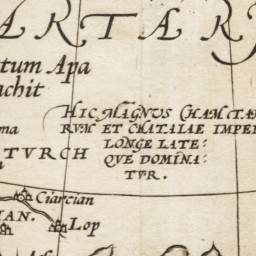 ARTAR
tum Apa
achit
HIC MAGNUS CHAM TAR
RUM ET CHATAIAE IMPER
LONGE LATE:
QUE DOMINA:
TUR.
ma
TVRCH
Ciarcian
IAN.
Lop